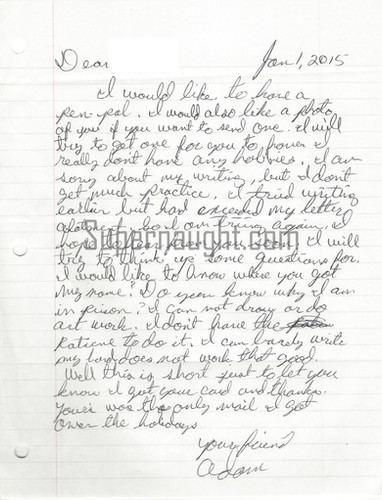 Dear
Jan 1, 2015
I would like to have a
pen-pal. I would also like a photo
of you if you want to send one. I will
try to get one for you to, have I
really dont have any hobbies. I am
sorry about my writing, but I don't
get much practice. I tried writing
earlier but had exceeded my letter
trying again. I
Supernaught.com
I will
try to think up some questions for.
I would like to know where you got
my name? Do you know why I am
in prison? I can not draw or do
art work. I dont have the
Patiene to do it. I can barely write
my hand does not work that good.
Well this is short just to let you
know I got your card and thanks.
Your's was the only mail I got
over the holidays
your friend
Adam